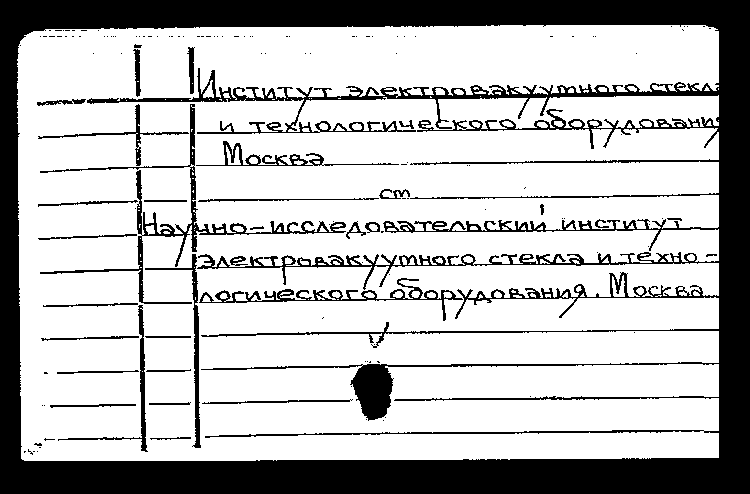 Институт электровакуумного стекла
и технологического оборудования
Москва
ст
Научно-исследовательский институт
электровакуумного стекла и техно-
логического оборудования. Москва